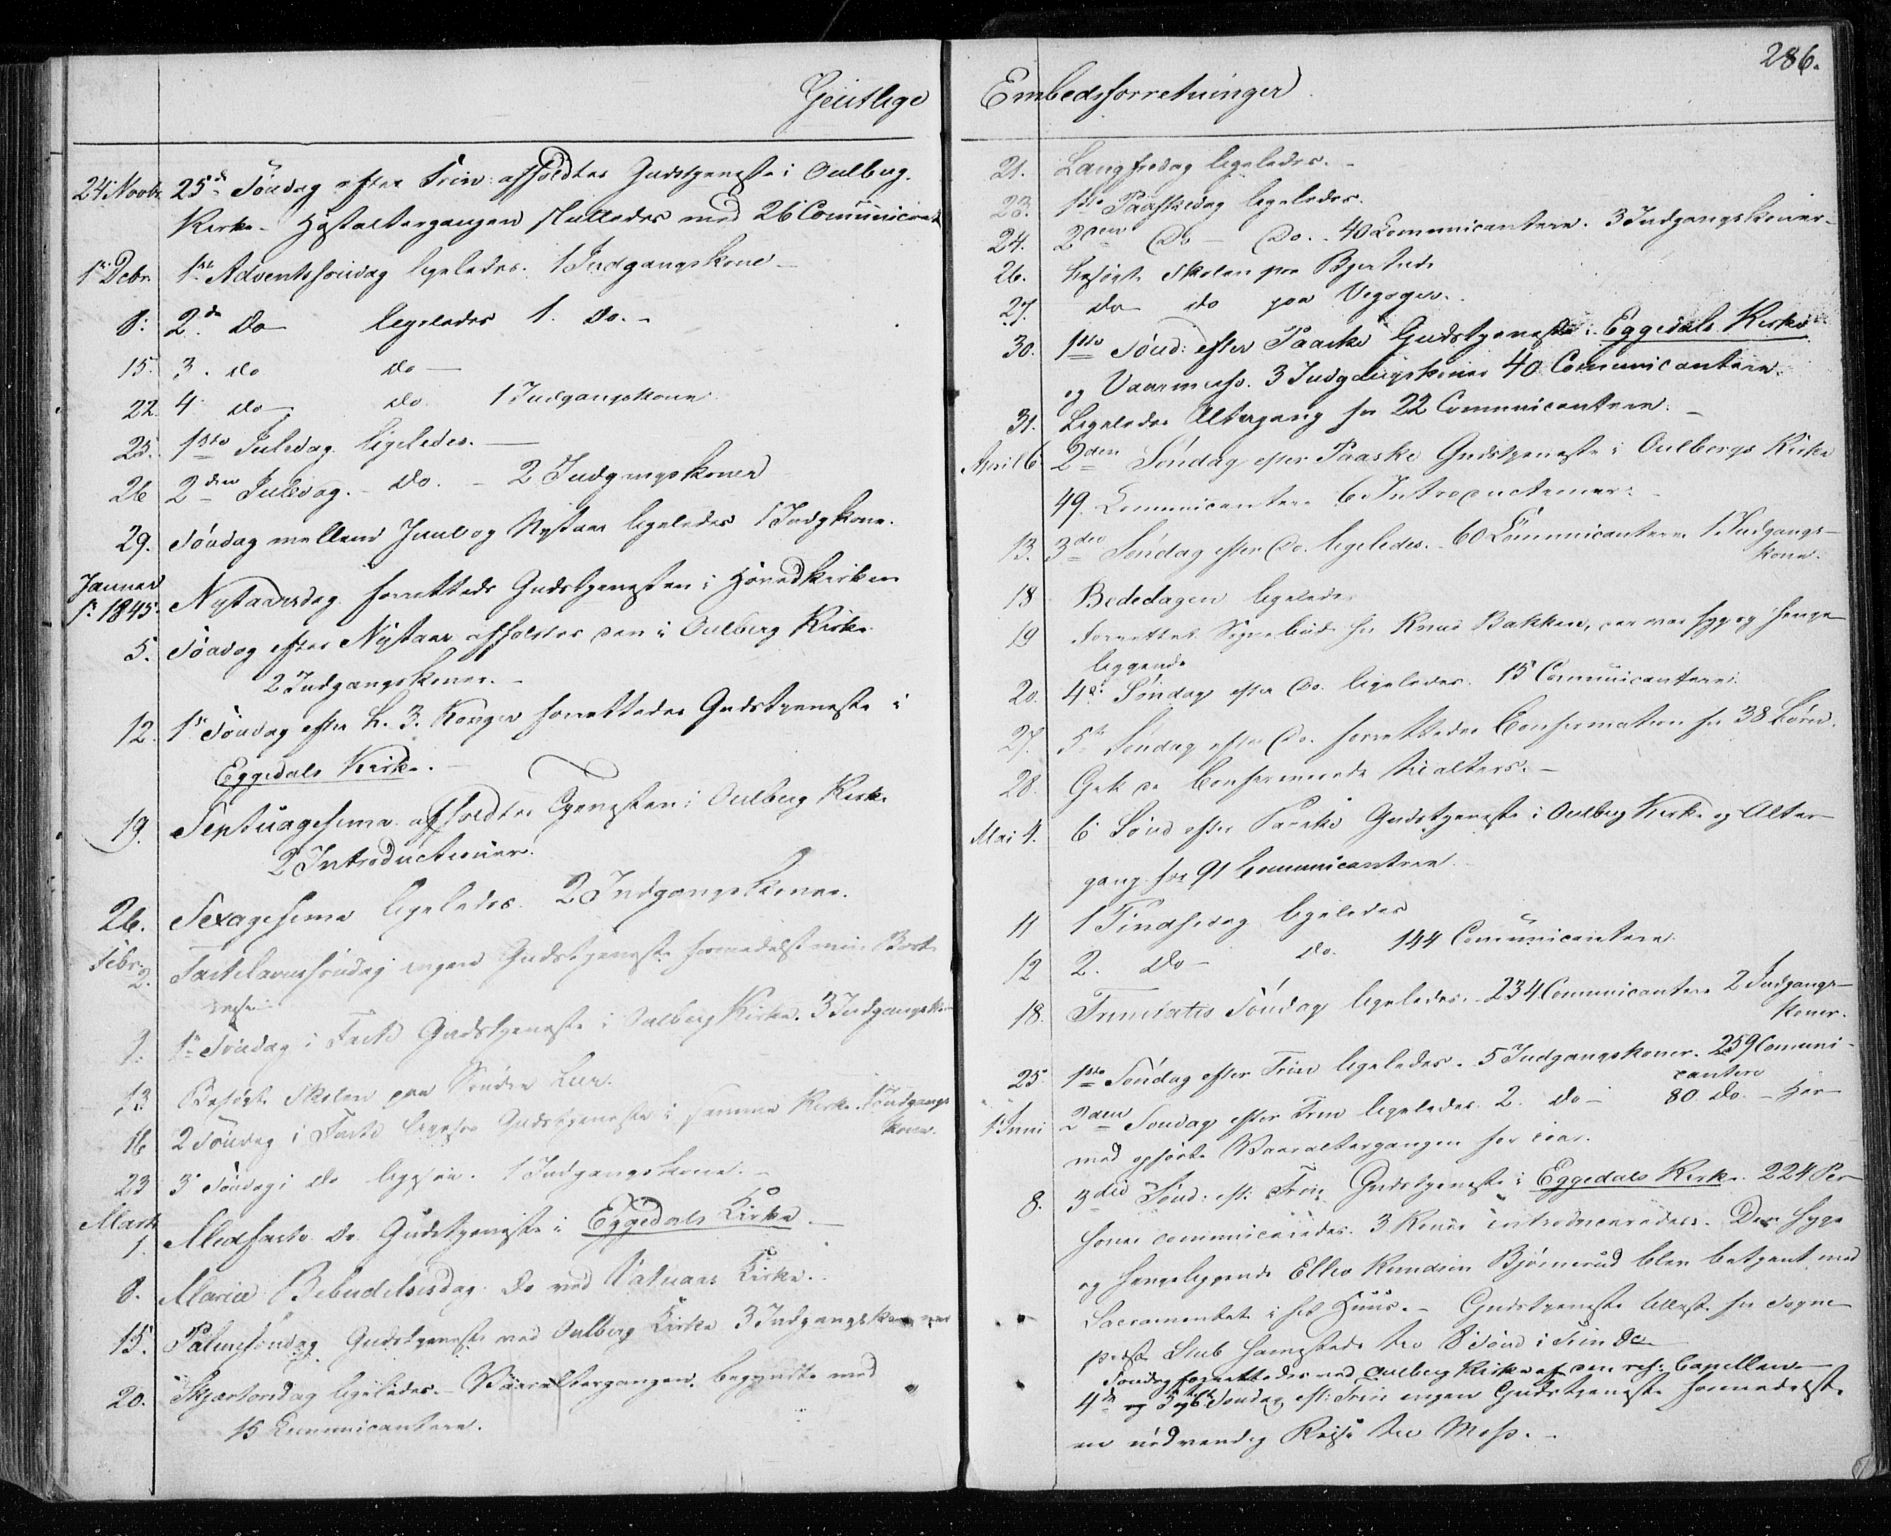 286.
Geistlige Embedsforretninger
24 Novbr. 25de Søndag efter Trin: afholdtes Gudstjeneste i Oulberg
Kirke. Høstaltergangen sluttedes med 26 Communicant
1ste Decbr. 1ste Adventssøndag ligeledes. 1 Indgangskone –
8. 2de do ligeledes 1. do. –
15. 3. do do –
22. 4. do do. 1 Indgangskone
25. 1ste Juledag ligeledes. –
26. 2den Juledag. – do. – 2 Indgangskoner
29. Søndag mellem Juul og Nytaar ligeledes 1 Indg.kone.
Januar
1. 1845. Nytaarsdag forrettede Gudstjenesten i Hovedkirken
5. Søndag efter Nytaar afholdtes den i Oulberg Kirke
2 Indgangskoner. –
12. 1ste Søndag efter h. 3 Konger forrettedes Gudstjeneste i
Eggedals Kirke. –
19. Septuagesima afholdtes Tjenesten i Oulberg Kirke
2 Introductioner.
26. Sexagesima ligeledes. 2 Indgangskoner.
Febr.
2. Fastelavnssøndag ingen Gudstjeneste formedelst min Bort-
reise
9. 1ste Søndag i Faste Gudstjeneste i Oulberg Kirke. 3 Indgangsk
13. Besøgt Skolen paa Søndre
16 2 Søndag i Faste ligesaa Gudstjeneste i samme Kirke. 1 Indgangs
kone.
23 3 Søndag i do ligesaa. 1 Indgangskone. –
Marts
1. Midfaste do Gudstjeneste i Eggedals Kirke –
8. Mariæ Bebudelsesdag do ved Kirke.
15. Palmesøndag Gudstjeneste ved Oulberg Kirke 3 Indgangskoner
20. Skjærtorsdag ligeledes. – Vaaraltergangen begyndte med
15 Communicantere.
21. Langfredag ligeledes. –
23. 1ste Paaskedag ligeledes.
24. 2den Do – Do. . 40 Communicantere. 3 Indgangskoner –
26. besøgt Skolen paa
27. do do paa
30. 1ste Sønd: efter Paaske Gudstjeneste i Eggedals Kirke
og 3 Indgangskoner 40 Communicantere.
31. Ligeledes Altergang for 22 Communicantere. –
April 6 2den Søndag efter Paaske Gudstjeneste i Oulbergs Kirke
49 Communicantere 6 Introductioner. –
13. 3die Søndag efter Do. ligeledes. – 60 Communicantere 1 Indgangs-
kone.
18 Bededagen ligeledes
19 forrettet Sognebud for Knud Bakken, der var syg og senge-
liggende
20. 4de Søndag efter Do. ligeledes. 15 Communicantere.
27. 5te Søndag efter Do. forrettedes Confirmation for 38 Børn.
28. Gik de Confirmerede til alters. –
Mai 4. 6 Sønd efter Paaske Gudstjeneste i Oulberg Kirke og Alter-
gang for 91 Communicantere.
11 1 Pindsedag ligeledes
12 2. do – do. 144 Communicantere.
18. Trinitatis Søndag ligeledes. – 234 Communicantere 2 Indgangs-
koner.
25. 1ste Søndag efter Trin ligeledes. 5 Indgangskoner. 259 Comuni-
cantere
1 Juni 2den Søndag efter Trin ligeledes. 2. do – 80 do. – Her-
med ophørte Vaaraltergangen for iaar.
8. 3die Sønd: eft: Trin Gudstjeneste i Eggedals Kirke. 224 Per-
soner communicerede. 3 Koner introduceredes. Den syge
og sengeliggende Ellev Knudsen Bjørnerud blev betjent med
Sacramentet i sit Huus. – Gudstjeneste for Sogne-
Søndag forrettedes ved Oulberg Kirke af den res: Capellan –
4de og 5te Søndag eft: Trin ingen Gudstjeneste formedelst
en nødvendig Reise til Moss. –